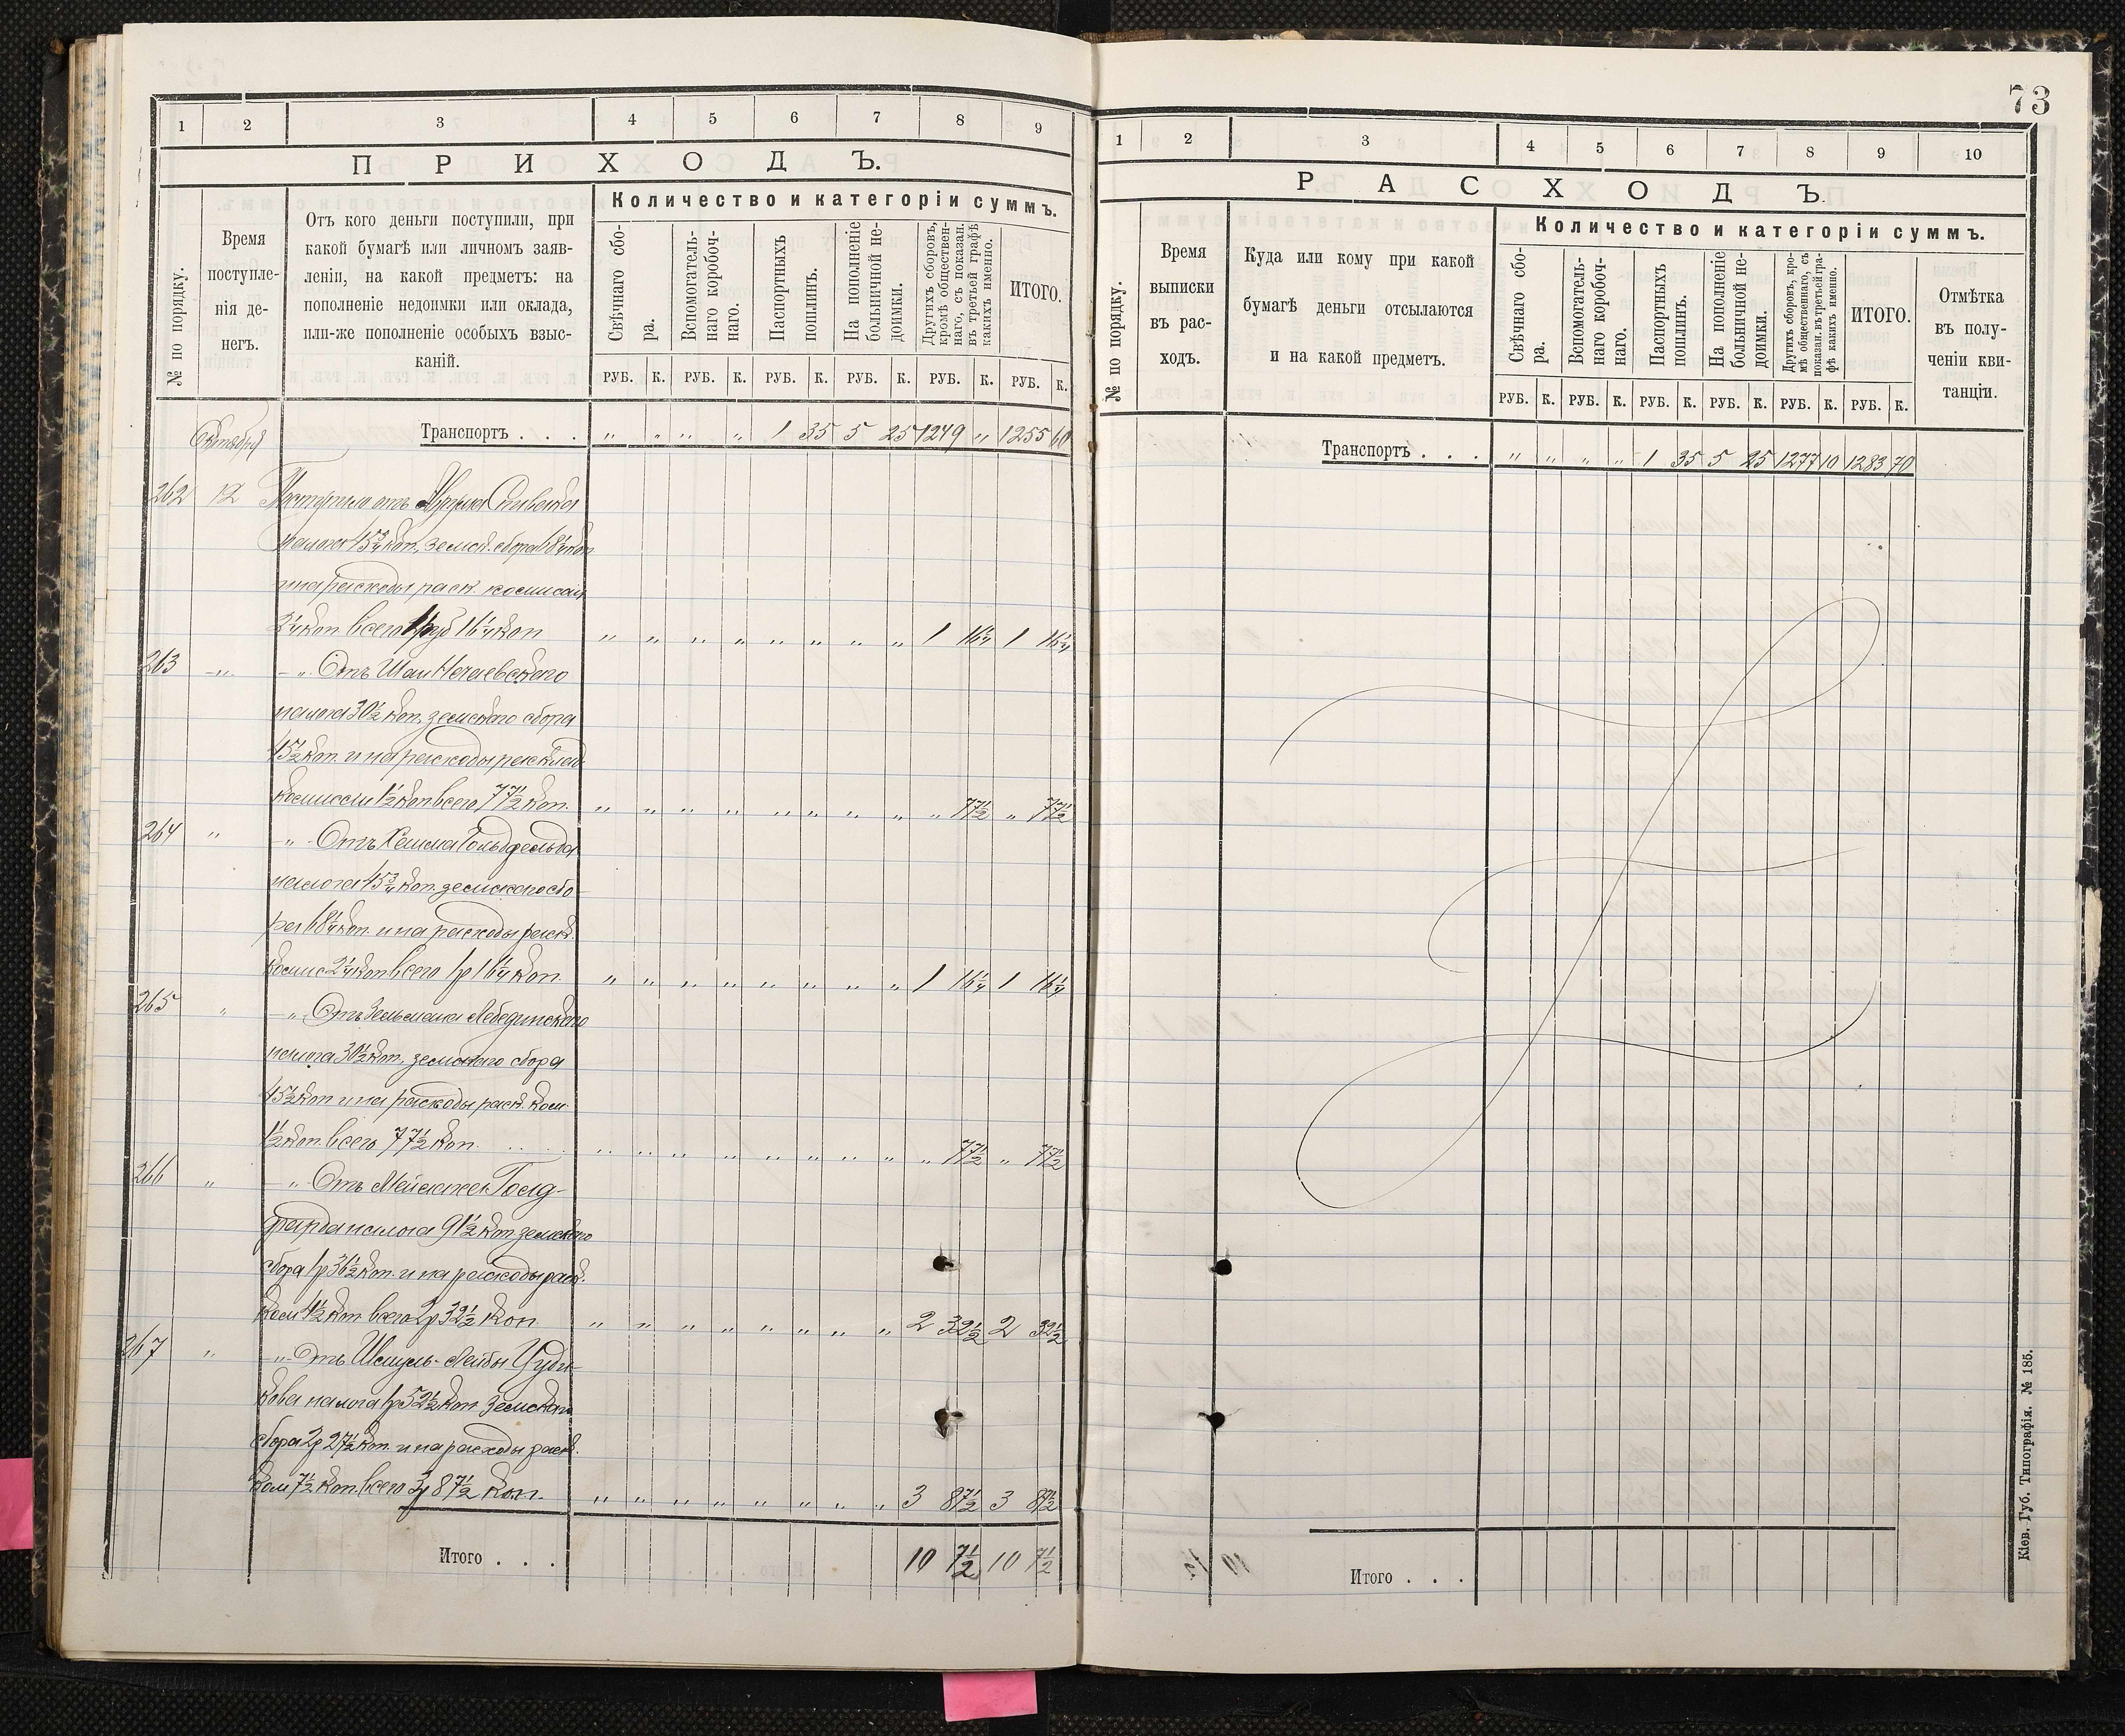 73
1 2 3 4 5 6 7 8 9
ПРИХОДЪ.
№ по порядку.
Время поступле-
нія де-
негъ.
Отъ кого деньги поступили, при
какой бумагѣ или личномъ заяв-
леніи, на какой предметъ: на
пополненіе недоимки или оклада,
или-же пополненіе особыхъ взыс-
каній.
Количество и категоріи суммъ.
Свѣчнаго сбо-
ра.
Вспомогатель-
наго коробоч-
наго.
Паспортныхъ
пошлинъ.
На пополненіе
больничной не-
доимки.
Другихъ сборовъ,
кромѣ обществен-
наго, съ показан.
въ третьей графѣ
какихъ именно.
ИТОГО.
РУБ. К. РУБ. К. РУБ. К. РУБ. К. РУБ. К. РУБ. К.
Октября Транспортъ . . . „ „ „ „ 1 35 5 25 1249 „ 1255 60
262 12 Поступило отъ
налога 45¾ коп., земск. сбора 68¼ коп
и на расходы раск. комисаи
2¼ коп всего 1 руб 16¼ коп „ „ „ „ „ „ „ „ 1 16¼ 1 16¼
263 -„- -„- Отъ Шаи Нечаевскаго
налога 30½ коп. земскаго сбора
45½ коп. и на расходы расклад.
комиссіи 1½ коп всего 77½ коп. „ „ „ „ „ „ „ „ „ 77½ „ 77½
264 „ -„- Отъ Хаима Гольдфельда
налога 45¾ коп. земскаго сбо-
ра 68¼ коп. и на расходы раск.
комис 2¼ коп всего 1 р 16¼ коп. „ „ „ „ „ „ „ „ 1 16¼ 1 16¼
265 „ -„- Отъ Зельмана Лебединскаго
налога 30½ коп. земскаго сбора
45½ коп и на расходы раск. ком.
1½ коп. всего 77½ коп. „ „ „ „ „ „ „ „ „ 77½ „ 77½
266 „ -„- Отъ
налога 91½ коп земскаго
сбора 1 р 36½ коп. и на расходы раск.
ком 4½ коп всего 2 р 32½ коп. „ „ „ „ „ „ „ „ 2 32½ 2 32½
267 „ -„- Отъ Шмуль-Лейбы Чуди-
кова налога 1 р 52½ коп земскаго
сбора 2 р 27½ коп. и на расходы раск.
ком 7½ коп. всего 3 р 87½ коп. „ „ „ „ „ „ „ „ 3 87½ 3 87½
Итого . . . 10 7½ 10 7½
1 2 3 4 5 6 7 8 9 10
РАСХОДЪ.
№ по порядку.
Время
выписки
въ рас-
ходъ.
Куда или кому при какой
бумагѣ деньги отсылаются
и на какой предметъ.
Количество и категоріи суммъ.
Свѣчнаго сбо-
ра.
Вспомогатель-
наго коробоч-
наго.
Паспортныхъ
пошлинъ.
На пополненіе
больничной не-
доимки.
Другихъ сборовъ, кро-
мѣ общественнаго, съ
показан. въ третьей гра-
фѣ какихъ именно.
ИТОГО.
Отмѣтка
въ полу-
ченіи кви-
танціи.
РУБ. К. РУБ. К. РУБ. К. РУБ. К. РУБ. К. РУБ. К.
Транспортъ . . . „ „ „ „ 1 35 5 25 1277 10 1283 70
Итого . . .
Кіев. Губ. Типографія. № 185.